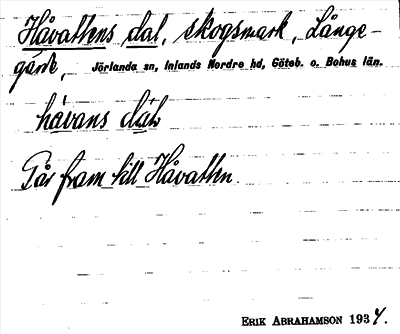 Håvattens dal, skogsmark, Långe-
gärde, Jörlanda sn, Inlands Nordre hd, Göteb. o. Bohus län.
håvans dal
Går fram till Håvatten.
ERIK ABRAHAMSON 1934.